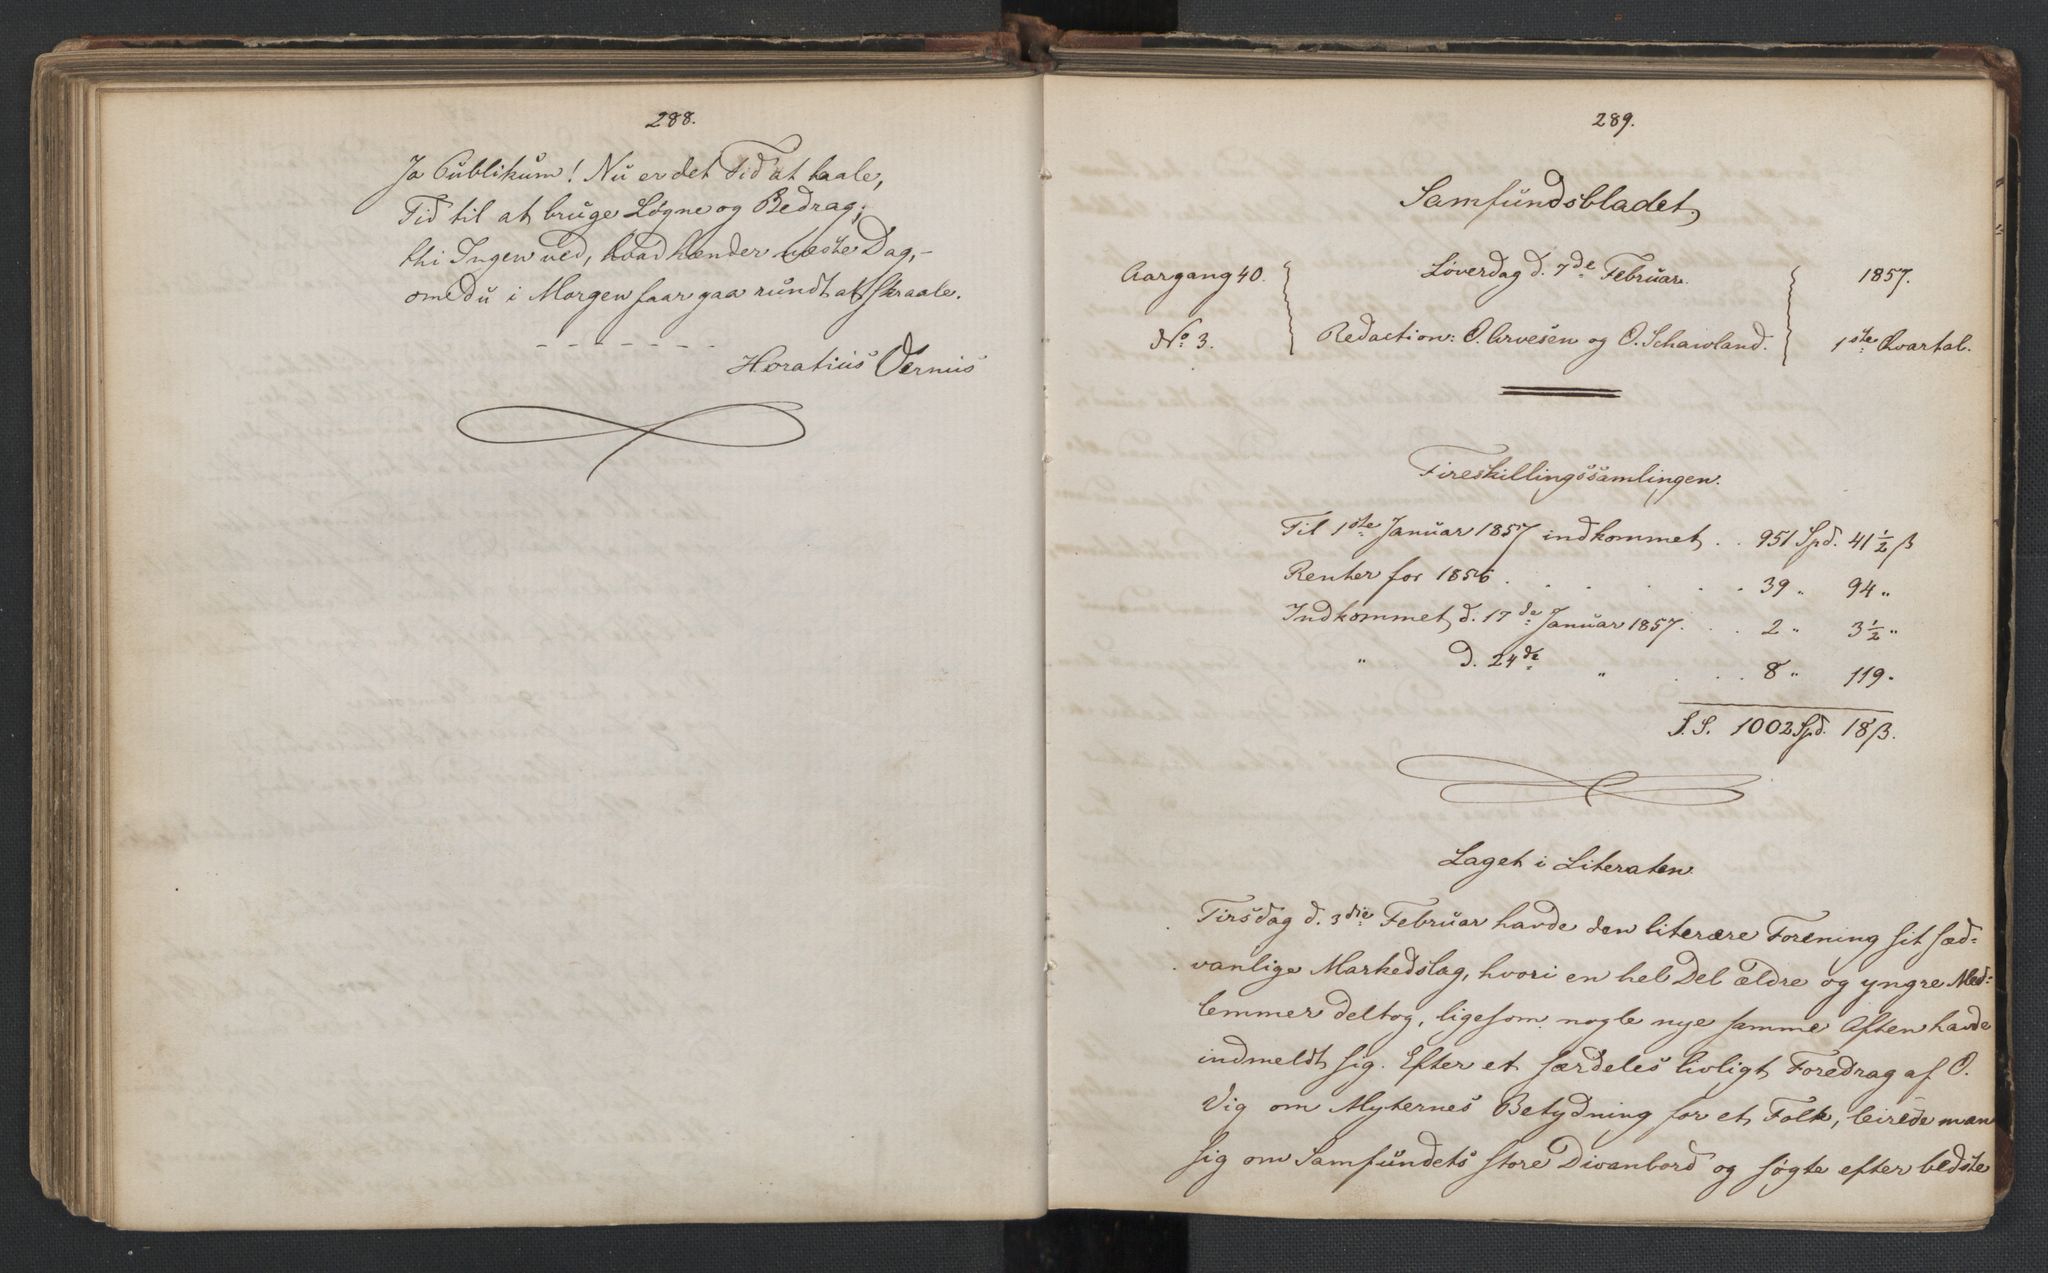 288.
Ja Publikum! Nu er det Tid at taale,
Tid til at bruge Løgne og Bedrag,
thi Ingen ved, hvad hænder næste Dag,-
om du i Morgen faar gaa rundt at skraale.
- - - - - - -
Horatius Vernus
289.
Samfundsbladet.
Aargang 40. Løverdag d. 7de Februar. 1857.
No 3. Redaction: O. Arvesen og O. Schawland. 1ste Qvartal.
Fireskillingssamlingen.
Til 1ste Januar 1857 indkommet . . 951 Spd. 41 1/2 ß
Renter for 1856 . . . . . . . 39 " 94 "
Indkommet d. 17de Januar 1857. . . 2 " 3 1/2 "
" d. 24de " . . . 8 " 119 "
S.S. 1002 Spd. 18 ß.
Laget i Literaten.
Tirsdag d. 3die Februar havde den literære Forening sit sæd=
vanlige Markedslag, hvori en hel Del ældre og yngre Med=
lemmer deltog, ligesom nogle nye samme Aften havde
indmeldt sig. Efter et særdeles livligt Foredrag af O.
Vig om Myternes Betydning for et Folk, leirede man
sig om Samfundets store Divanbord og søgte efter bedste